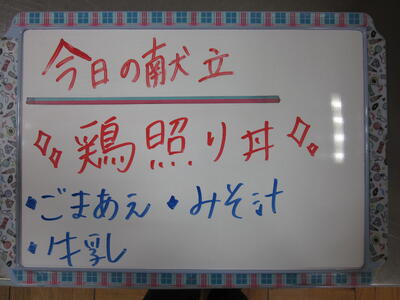 今日の献立
鶏照り丼
・ごまあえ ・みそ汁
・牛乳